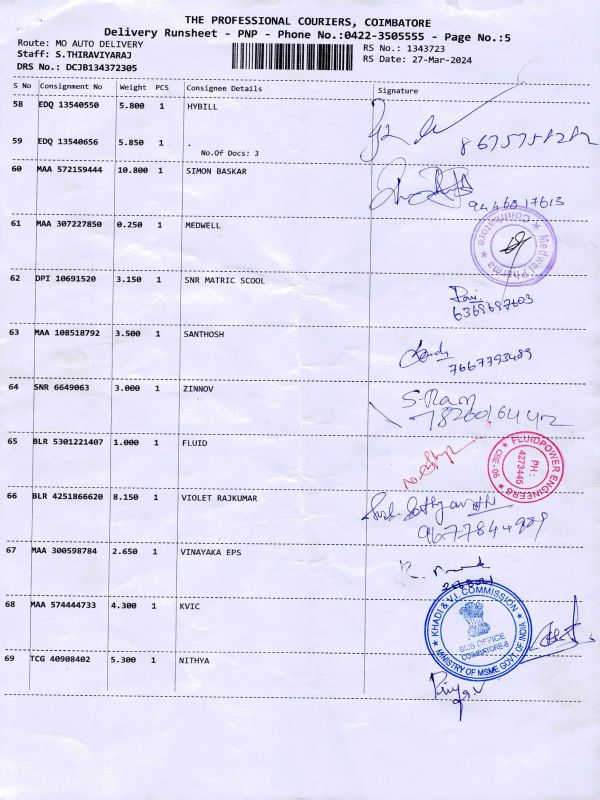 THE PROFESSIONAL COURIERS, COIMBATORE
Delivery Runsheet - PNP - Phone No.:0422-3505555 - Page No.:5
Route: MO AUTO DELIVERY RS No.: 1343723
Staff: S.THIRAVIYARAJ RS Date: 27-Mar-2024
DRS No.: DCJB134372305
S No Consignment No Weight PCS Consignee Details Signature
58 EDQ 13540550 5.800 1 HYBILL
59 EDQ 13540656 5.850 1 .
No.Of Docs: 3
60 MAA 572159444 10.800 1 SIMON BASKAR
9446817613
61 MAA 307227850 0.250 1 MEDWELL
★ Medwel Pharma ★ Coimbatore
62 DPI 10691520 3.150 1 SNR MATRIC SCOOL
Ravi
6369697603
63 MAA 108518792 3.500 1 SANTHOSH
7667793489
64 SNR 6649063 3.000 1 ZINNOV
S. Ram
65 BLR 5301221407 1.000 1 FLUID
★ FLUIDPOWER ENGINEERS ★ CBE-06
PH :
4273445
66 BLR 4251866620 8.150 1 VIOLET RAJKUMAR
9677844909
67 MAA 300598784 2.650 1 VINAYAKA EPS
68 MAA 574444733 4.300 1 KVIC
★ KHADI & V.I. COMMISSION ★
SUB OFFICE
COIMBATORE-6
MINISTRY OF MSME GOVT. OF INDIA
69 TCG 40908402 5.300 1 NITHYA